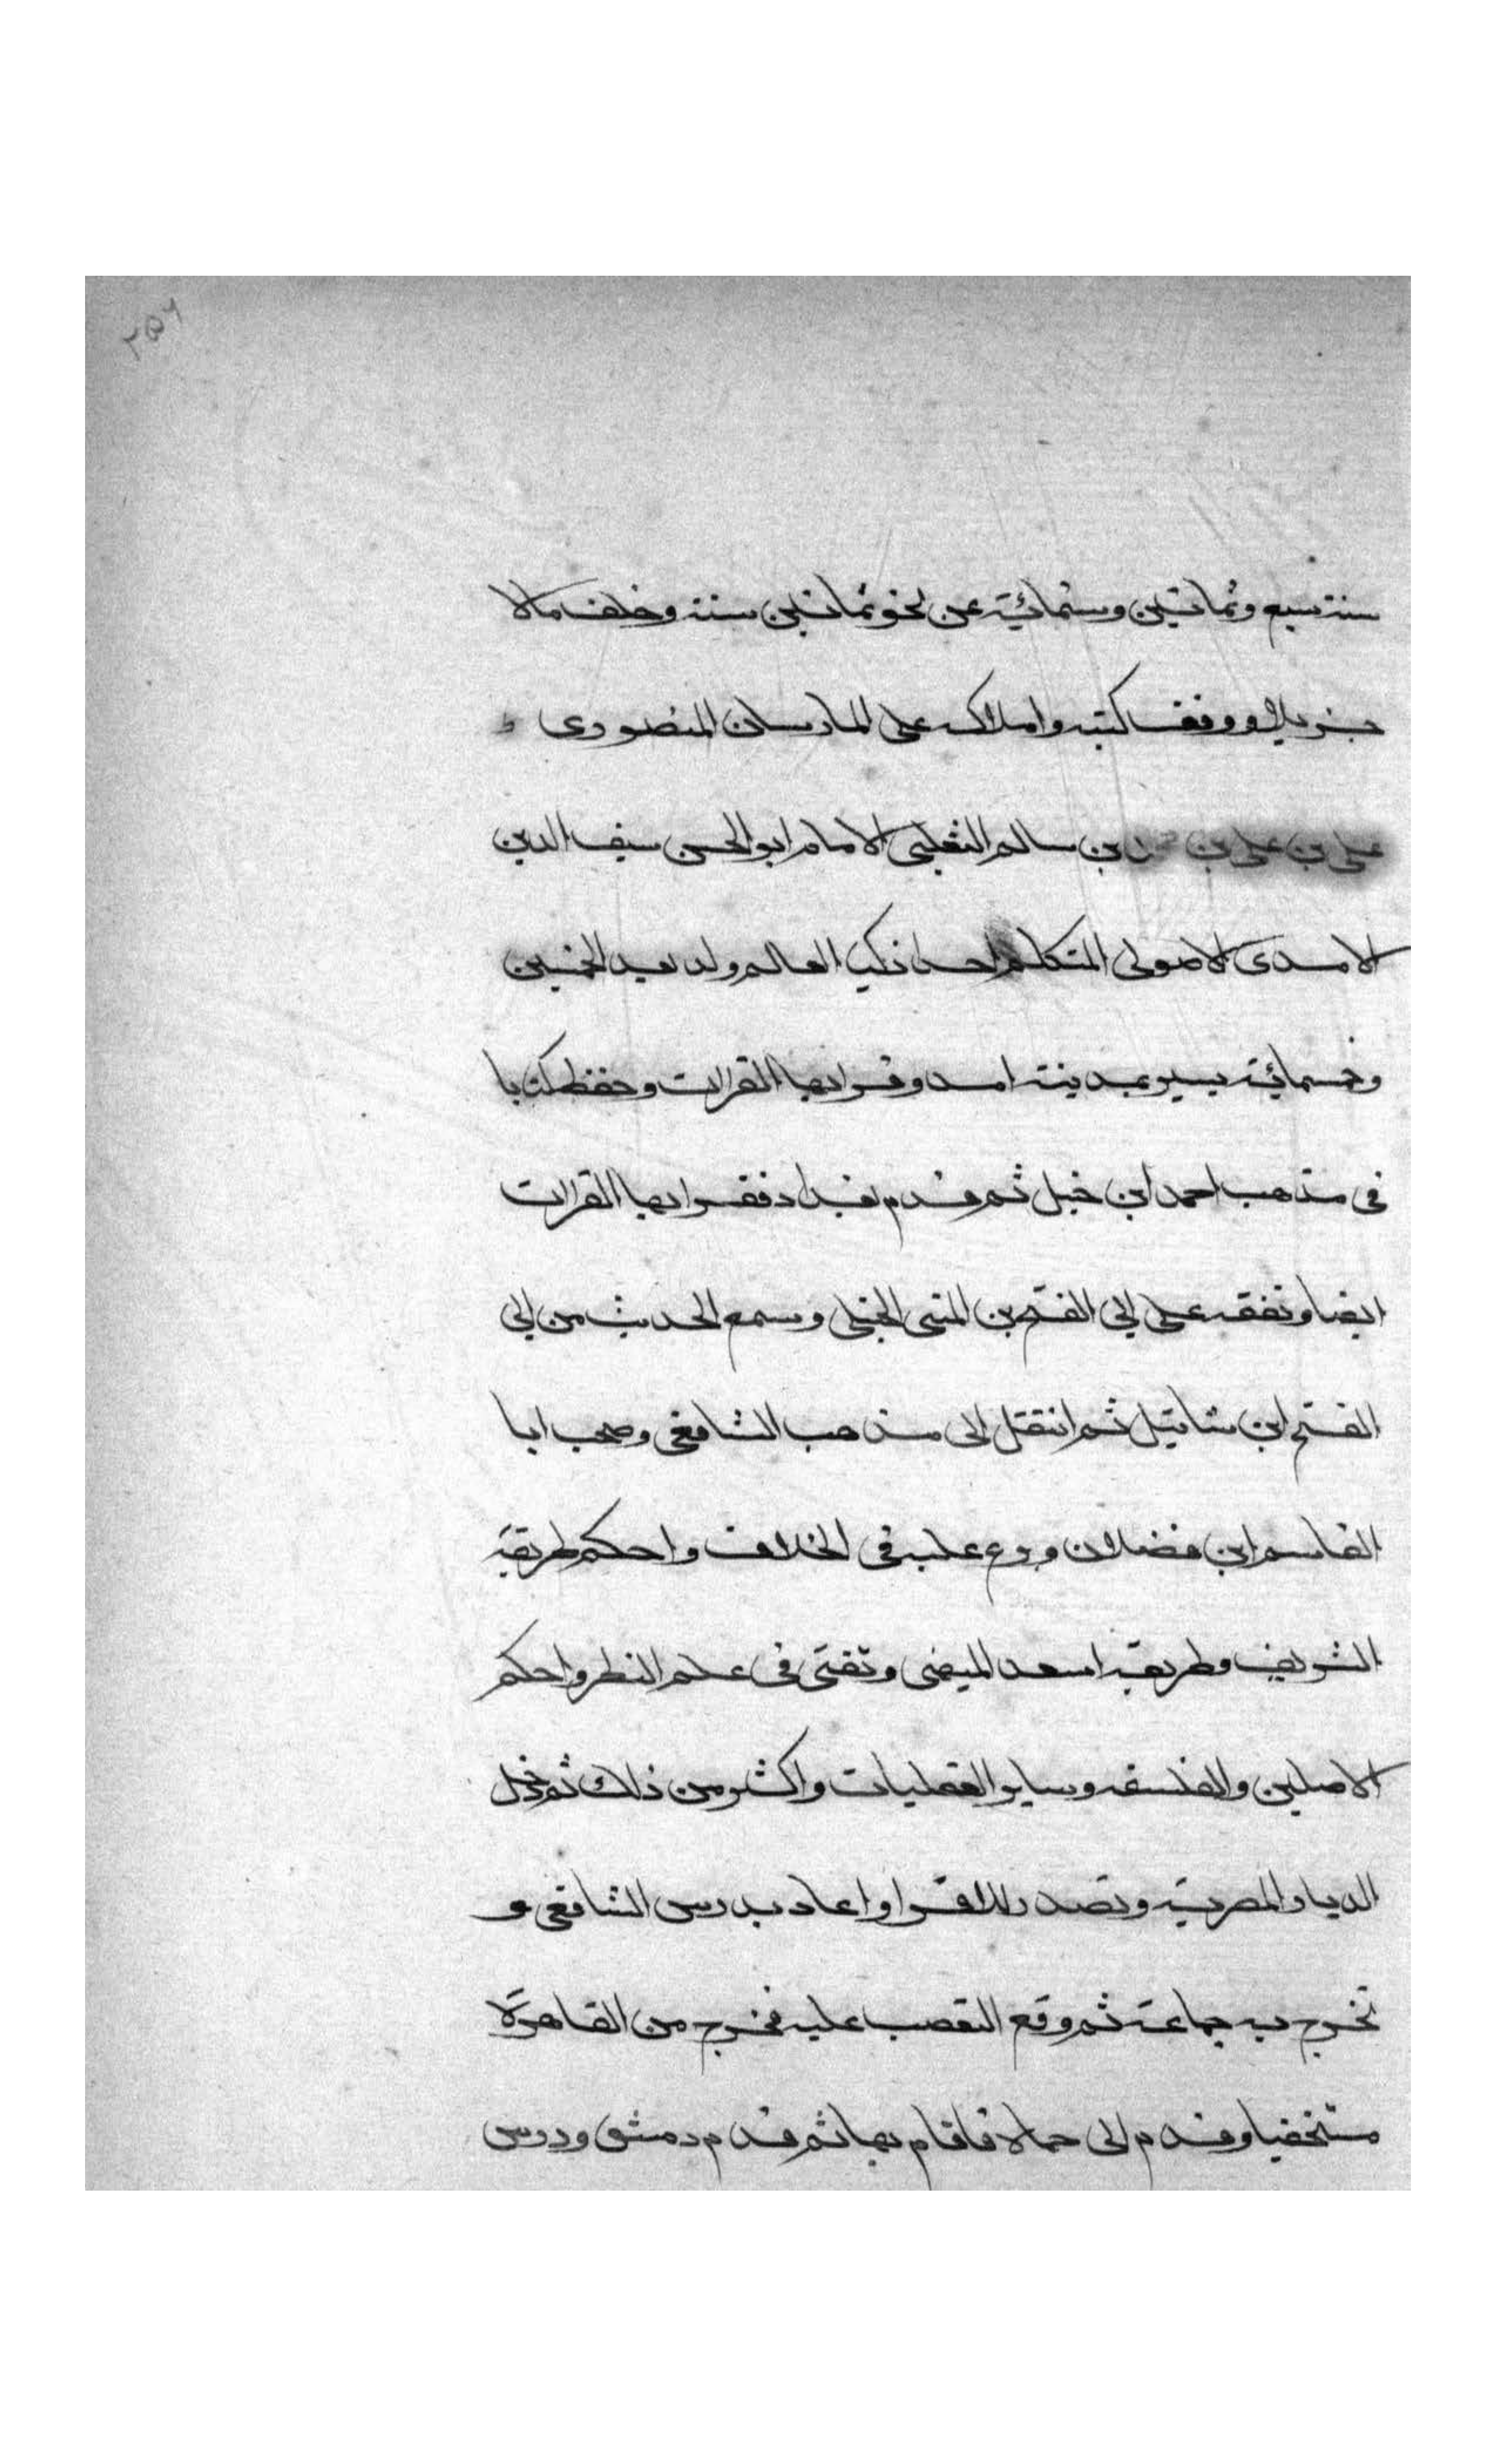 ٢٥٦
سنة سبع وثمانين وستمائية عن نحو ثمانين سنة وخلف مالا
جزيلا ووقف كتبه واملاكه على المارستان المنصورى
على بن على بن بن سالم الثعلبى الامام ابو الحسن سيف الدين
الامدى الاصولى المتكلم احد اذكيا العالم ولد بعيد الخمسين
وخمسمائية بيسير بمدينة امد وقرا بها القراات وحفظ كتابا
فى مذهب احمد ابن حنبل ثم قدم بغداد فقرا بها القراات
ايضا وتفقه على ابى الفتح بن المنى الحنبلى وسمع الحديث من ابى
الفتح ابن شاتيل ثم انتقل الى مذهب الشافعى وصحب ابا
القاسم ابن فضلان وبرع عليه فى الخلاف واحكم طريقة
الشريف وطريقة اسعد الميهنى وتفنى فى علم النظر واحكم
الاصلين والفلسفه وساير العقليات واكثر من ذلك ثم دخل
الديار المصرية وتصدر للاقرا واعاد بدرس الشافعى و
تخرج به جماعة ثم وقع التعصب عليه فخرج من القاهرة
مستخفيا وقدم الى حماة فاقام بها ثم قدم دمشق ودرس